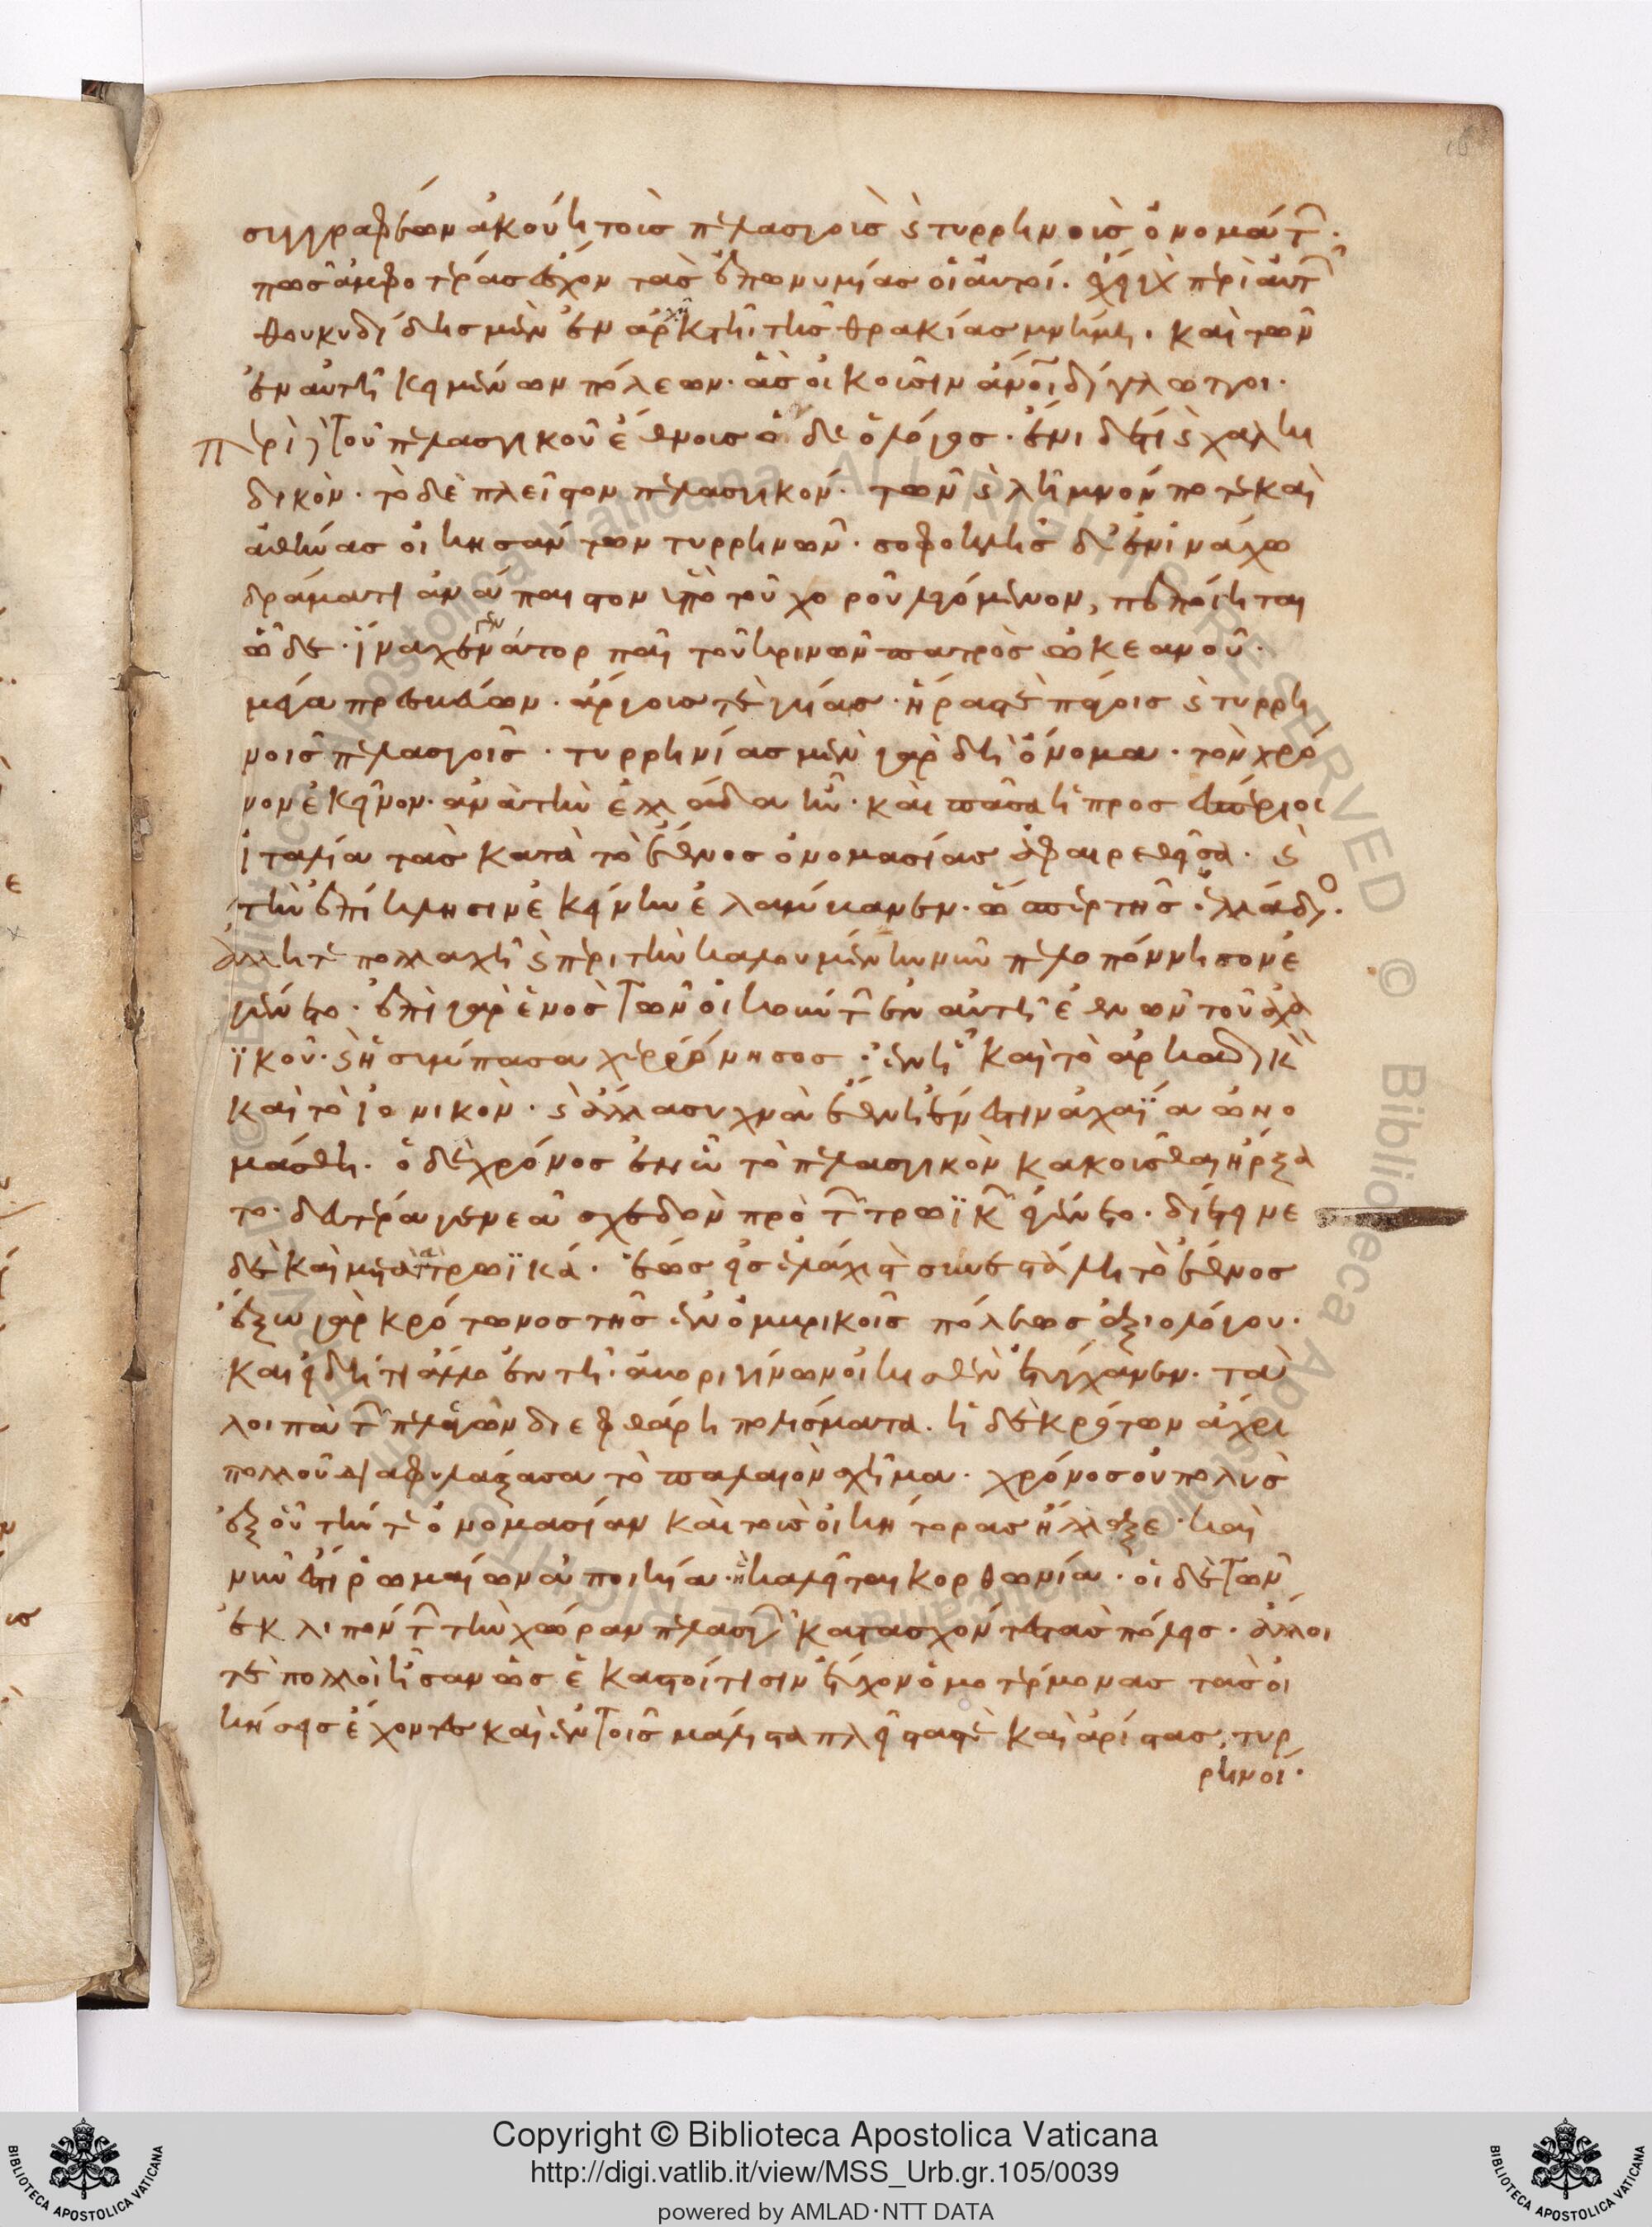 συγγραφέων ἀκούῃ τοῖς πελασγοῖς καὶ τυρρηνοῖς ὀνομάτων.
πῶς ἀμφοτέρας ἔσχον τὰς ἐπωνυμίας οἱ αὐτοί. ἔχει γὰρ περὶ αὐτῶν
θουκυδίδης μὲν ἐν ἀκτῆι τῆς θρακίας μνήμη. καὶ τῶν
ἐν αὐτῆ κειμένων πόλεων. ἃς οἰκοῦσιν ἄνθρωποι δίγλωττοι.
περὶ τοῦ πελασγικοῦ ἔθνους ὅδε ὁ λόγος. ἔνι δέ τι καὶ χαλκι
δικὸν. τὸ δὲ πλεῖστον πελασγικόν. τῶν καὶ λῆμνόν ποτε καὶ
ἀθήνας οἰκησάντων τυρρηνῶν. σοφοκλῆς δ' ἐν ἰνάχω
δράματι ἀνάπαιστον ὑπὸ τοῦ χοροῦ λεγόμενον, πεποίηται
ὧδε. ἴναχε νάτορ παῖ τοῦ κρηνῶν πατρὸς ὠκεανοῦ.
μέγα πρεσβεύων. ἄργους τε γύας. ἥρας τε πάγοις καὶ τυρρη
νοῖς πελασγοῖς. τυρρηνίας μὲν γὰρ δὴ ὄνομα. τὸν χρό
νον ἐκεῖνον. ἀνὰ τὴν ἑλλάδα ἦν. καὶ πᾶσα ἡ προσεσπέριος
ἰταλία τὰς κατὰ τὸ ἔθνος ὀνομασίας ἀφαιρεθεῖσα. καὶ
τὴν ἐπίκλησιν ἐκείνην ἐλάμβανεν. ὥσπερ τῆς ἑλλάδος.
ἄλλη τε πολλαχῆ καὶ περὶ τὴν καλουμένην νῦν πελοπόννησον ἐ
γένετο. ἐπὶ γὰρ ἑνὸς τῶν οἰκούντων ἐν αὐτῆ ἐθνῶν τοῦ ἀχα
ϊκοῦ. καὶ ἡ σύμπασα χερρόνησος. ἐν ἧ καὶ τὸ ἀρκαδικὸν
καὶ τὸ ἰονικὸν. καὶ ἄλλα συχνὰ ἔθνη ἔνεστιν ἀχαΐα ὠνο
μάσθη. ὁ δὲ χρόνος ἐν ᾧ τὸ πελασγικὸν κακοῦσθαι ἤρξα
το. δευτέρα γενεᾶ σχεδὸν πρὸ τῶν τρωϊκῶν ἐγένετο. διέμεινε
δὲ καὶ μετὰ τὰ τρωϊκά. ἕως εἰς ἐλάχιστα συνεστάλη τὸ ἔθνος
ἔξω γὰρ κρότωνος τῆς ἐν ὀμβρικοῖς πόλεως ἀξιολόγου.
καὶ εἰ δή τι ἄλλο ἐν τῆ ἀβοριγίνων οἰκισθὲν ἐτύγχανεν. τὰ
λοιπὰ τῶν πελασγῶν διεφθάρη πολίσματα. ἡ δὲ κρότων ἄχρι
πολλοῦ διαφυλάξασα τὸ παλαιὸν σχῆμα. χρόνος οὐ πολὺς
ἐξ οὗ τήν τε ὀνομασίαν καὶ τοὺς οἰκήτορας ἤλλαξε. καὶ
νῦν ἐστὶ ῥωμαίων ἀποικία. καλεῖται κορθωνία. οἱ δὲ τῶν
ἐκλιπόντων τὴν χώραν πελασγῶν κατασχόντες τὰς πόλεις. ἄλλοι
τε πολλοὶ ἦσαν ὡς ἕκαστοί τισιν ἔτυχον ὁμοτέρμονας τὰς οἰ
κήσεις ἔχοντες καὶ ἐν τοῖς μάλιστα πλείστας τε καὶ ἀρίστας, τυρ
ρηνοι.
Copyright © Biblioteca Apostolica Vaticana
http://digi.vatlib.it/view/MSS_Urb.gr.105/0039
powered by AMLAD·NTT DATA
BIBLIOTECA APOSTOLICA VATICANA
BIBLIOTECA APOSTOLICA VATICANA